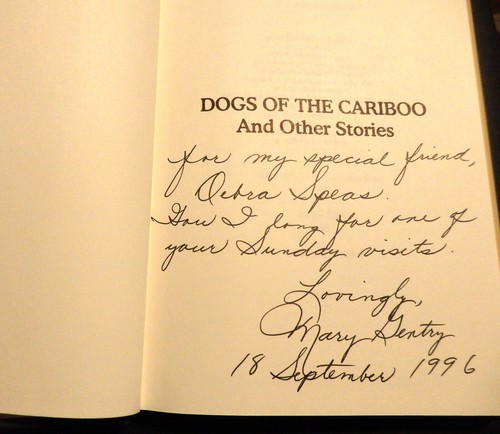 DOGS OF THE CARIBOO
And Other Stories
for my special friend,
Debra Speas.
How I long for one of
your Sunday visits.
Lovingly,
Mary Gentry
18 September 1996